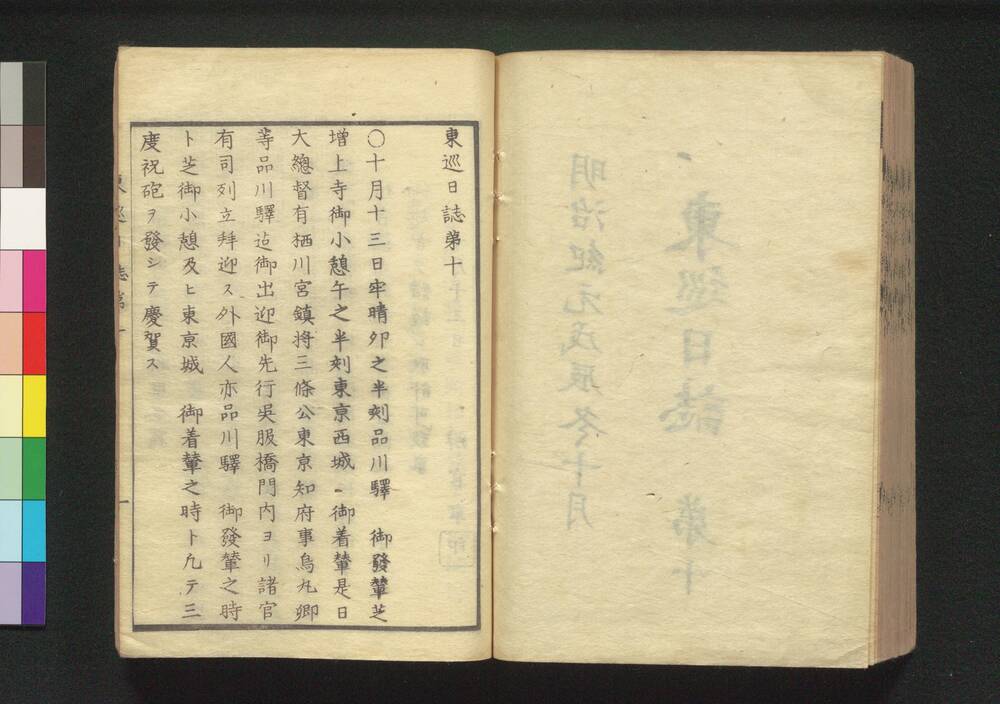 東巡日誌第十
〇十月十三日牢晴夘之半刻品川驛　御發輦芝
増上寺御小憩午之半刻東京西城ヘ御着輦是日
大總督有栖川宮鎮将三條公東京知府事烏丸卿
等品川驛迠御出迎御先行吳服橋門内ヨリ諸官
有司列立拜迎ス外國人亦品川驛　御發輦之時
ト芝御小憩及ヒ東京城　御着輦之時ト凢テ三
度祝砲ヲ發シテ慶賀ス
東巡日誌第十
一
東巡日誌　第十
明治紀元戊辰冬十月